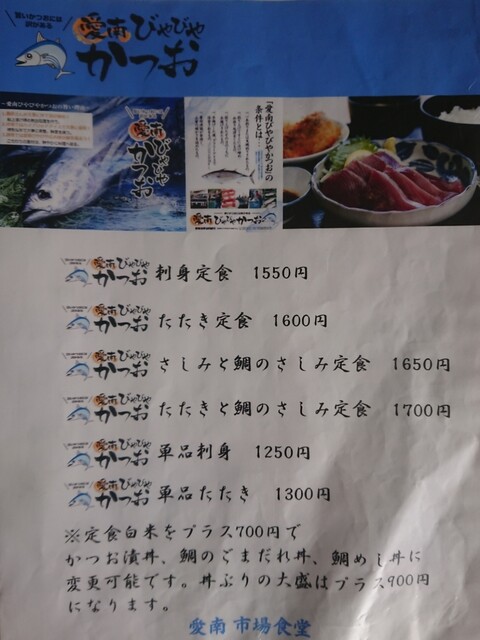 愛南びやびや
かつお
「愛南びやびやかつお」の
条件とは…
愛南びやびや
かつお
愛南びやびやかつお
愛南びやびやかつお 刺身定食 1550円
愛南びやびやかつお たたき定食 1600円
愛南びやびやかつお さしみと鯛のさしみ定食 1650円
愛南びやびやかつお たたきと鯛のさしみ定食 1700円
愛南びやびやかつお 単品刺身 1250円
愛南びやびやかつお 単品たたき 1300円
※定食白米をプラス700円で
かつお漬丼、鯛のごまだれ丼、鯛めし丼に
変更可能です。丼ぶりの大盛はプラス900円
になります。
愛南 市場食堂